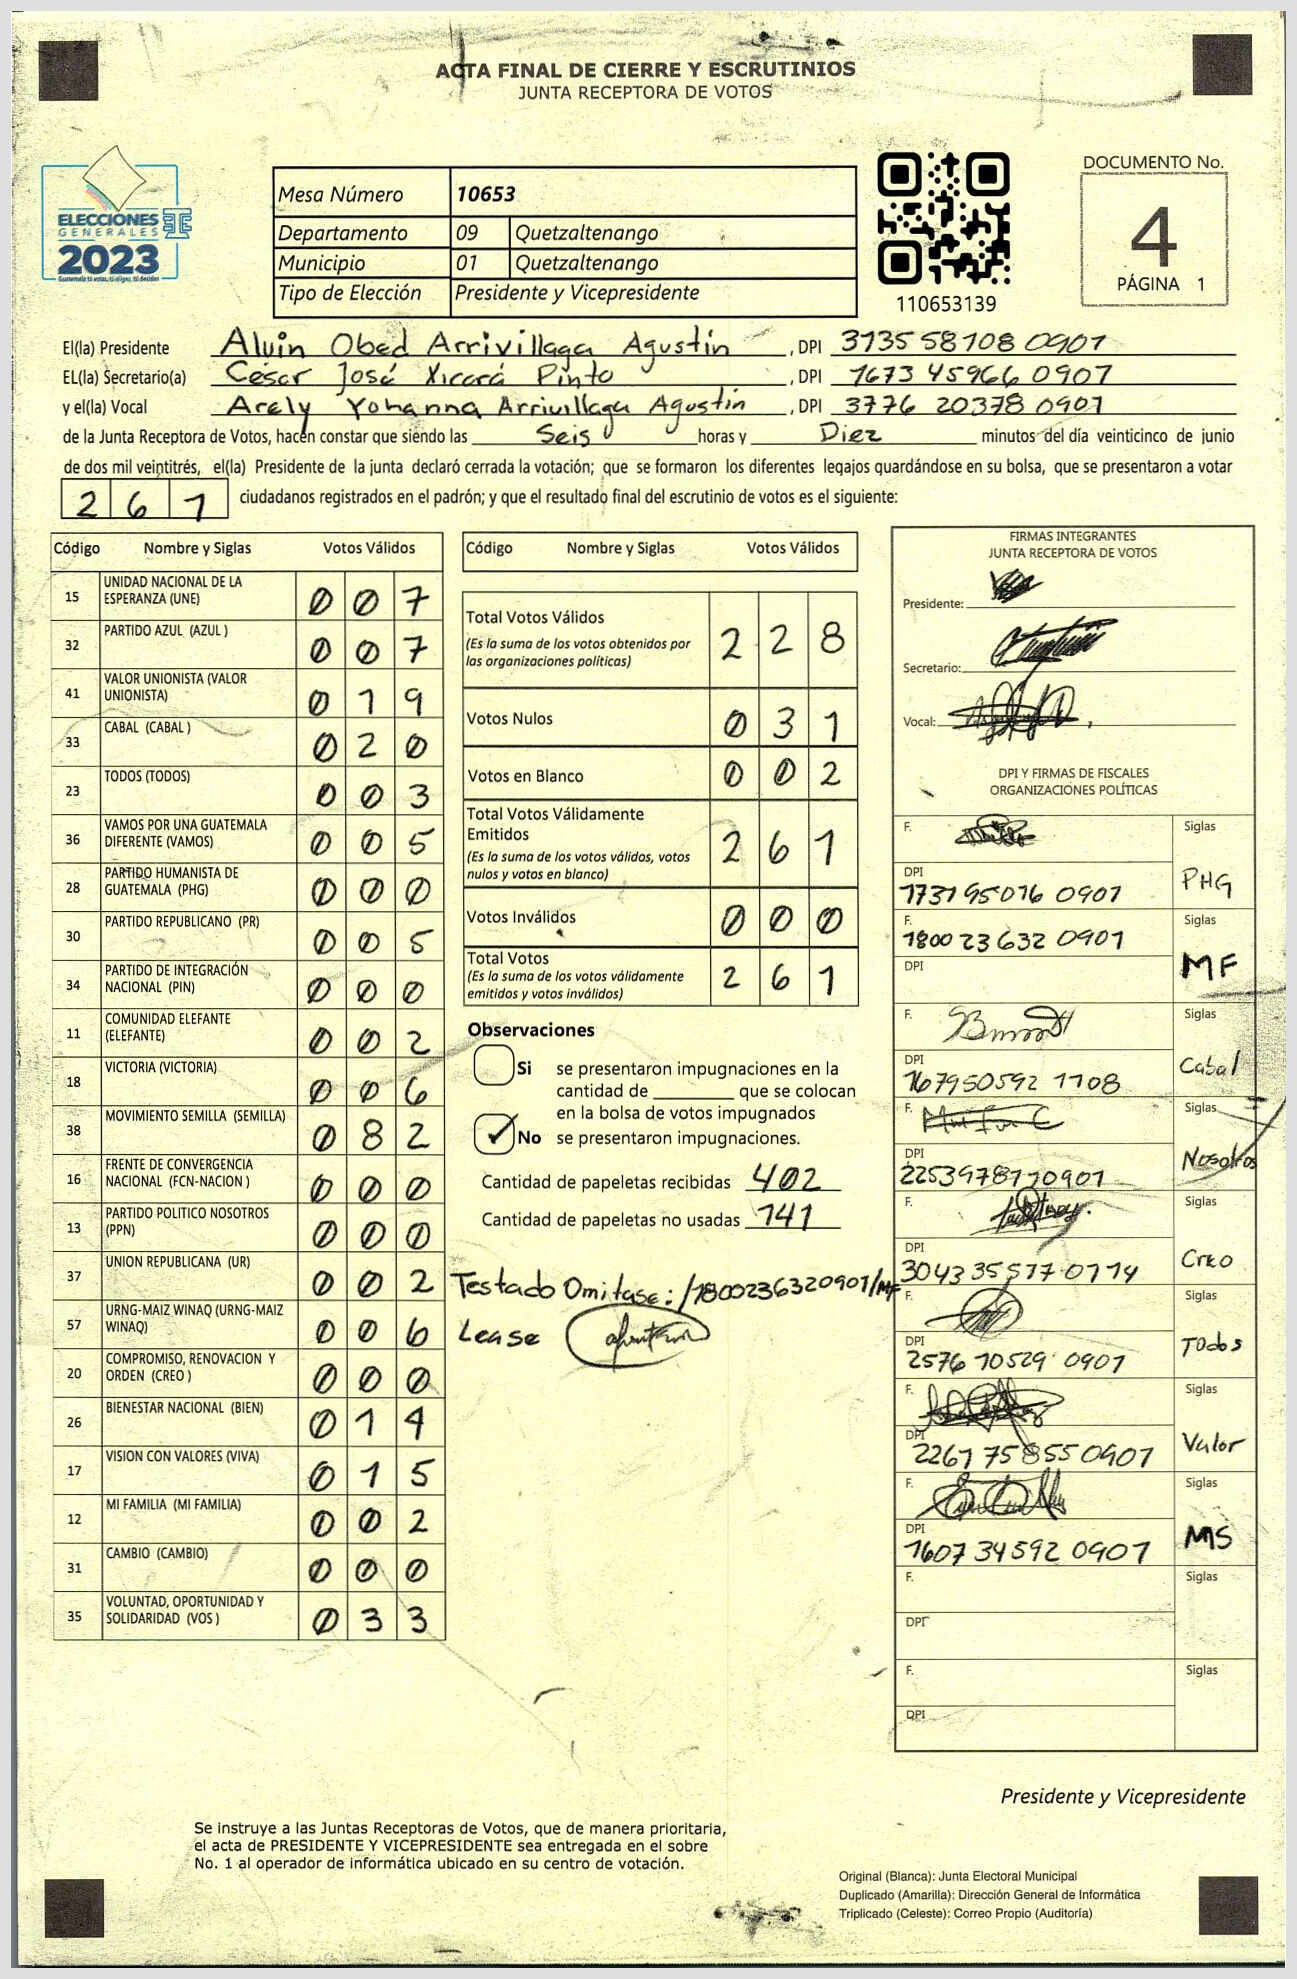 ACTA FINAL DE CIERRE Y ESCRUTINIOS
JUNTA RECEPTORA DE VOTOS
ELECCIONES
GENERALES
2023
Guatemala tú votas, tú eliges, tú decides
Mesa Número 10653
Departamento 09 Quetzaltenango
Municipio 01 Quetzaltenango
Tipo de Elección Presidente y Vicepresidente
110653139
DOCUMENTO No.
4
PÁGINA 1
El(la) Presidente Alvin Obed Arrivillaga Agustín , DPI 3135 58108 0901
EL(la) Secretario(a) César José Xicará Pinto , DPI 1673 45966 0907
y el(la) Vocal Arely Yohanna Arrivillaga Agustin , DPI 3776 20378 0901
de la Junta Receptora de Votos, hacen constar que siendo las Seis horas y Diez minutos del día veinticinco de junio
de dos mil veintitrés, el(la) Presidente de la junta declaró cerrada la votación; que se formaron los diferentes legajos guardándose en su bolsa, que se presentaron a votar
2 6 1 ciudadanos registrados en el padrón; y que el resultado final del escrutinio de votos es el siguiente:
Código Nombre y Siglas Votos Válidos
15 UNIDAD NACIONAL DE LA ESPERANZA (UNE) 0 0 7
32 PARTIDO AZUL (AZUL ) 0 0 7
41 VALOR UNIONISTA (VALOR UNIONISTA) 0 1 9
33 CABAL (CABAL ) 0 2 0
23 TODOS (TODOS) 0 0 3
36 VAMOS POR UNA GUATEMALA DIFERENTE (VAMOS) 0 0 5
28 PARTIDO HUMANISTA DE GUATEMALA (PHG) 0 0 0
30 PARTIDO REPUBLICANO (PR) 0 0 5
34 PARTIDO DE INTEGRACIÓN NACIONAL (PIN) 0 0 0
11 COMUNIDAD ELEFANTE (ELEFANTE) 0 0 2
18 VICTORIA (VICTORIA) 0 0 6
38 MOVIMIENTO SEMILLA (SEMILLA) 0 8 2
16 FRENTE DE CONVERGENCIA NACIONAL (FCN-NACION ) 0 0 0
13 PARTIDO POLITICO NOSOTROS (PPN) 0 0 0
37 UNION REPUBLICANA (UR) 0 0 2
57 URNG-MAIZ WINAQ (URNG-MAIZ WINAQ) 0 0 6
20 COMPROMISO, RENOVACION Y ORDEN (CREO ) 0 0 0
26 BIENESTAR NACIONAL (BIEN) 0 1 4
17 VISION CON VALORES (VIVA) 0 1 5
12 MI FAMILIA (MI FAMILIA) 0 0 2
31 CAMBIO (CAMBIO) 0 0 0
35 VOLUNTAD, OPORTUNIDAD Y SOLIDARIDAD (VOS ) 0 3 3
Código Nombre y Siglas Votos Válidos
Total Votos Válidos 2 2 8
(Es la suma de los votos obtenidos por
las organizaciones políticas)
Votos Nulos 0 3 1
Votos en Blanco 0 0 2
Total Votos Válidamente
Emitidos 2 6 1
(Es la suma de los votos válidos, votos
nulos y votos en blanco)
Votos Inválidos 0 0 0
Total Votos 2 6 1
(Es la suma de los votos válidamente
emitidos y votos inválidos)
Observaciones
Si se presentaron impugnaciones en la
cantidad de ________ que se colocan
en la bolsa de votos impugnados
No se presentaron impugnaciones.
Cantidad de papeletas recibidas 402
Cantidad de papeletas no usadas 141
Testado Omitase: /1800236320901/MF
Lease
FIRMAS INTEGRANTES
JUNTA RECEPTORA DE VOTOS
Presidente:
Secretario:
Vocal:
DPI Y FIRMAS DE FISCALES
ORGANIZACIONES POLÍTICAS
F. Siglas
DPI PHG
1731 95016 0901
F. Siglas
1800 23 632 0901
DPI MF
F. Siglas
DPI Cabal
167950592 1108
F. Siglas
DPI Nosotros
2253978770901
F. Siglas
DPI Creo
3043 35577 0114
F. Siglas
DPI Todos
2576 10529 0901
F. Siglas
DPI Valor
2261 75855 0901
F. Siglas
DPI MS
1607 34592 0901
F. Siglas
DPI
F. Siglas
DPI
Presidente y Vicepresidente
Se instruye a las Juntas Receptoras de Votos, que de manera prioritaria,
el acta de PRESIDENTE Y VICEPRESIDENTE sea entregada en el sobre
No. 1 al operador de informática ubicado en su centro de votación.
Original (Blanca): Junta Electoral Municipal
Duplicado (Amarilla): Dirección General de Informática
Triplicado (Celeste): Correo Propio (Auditoría)